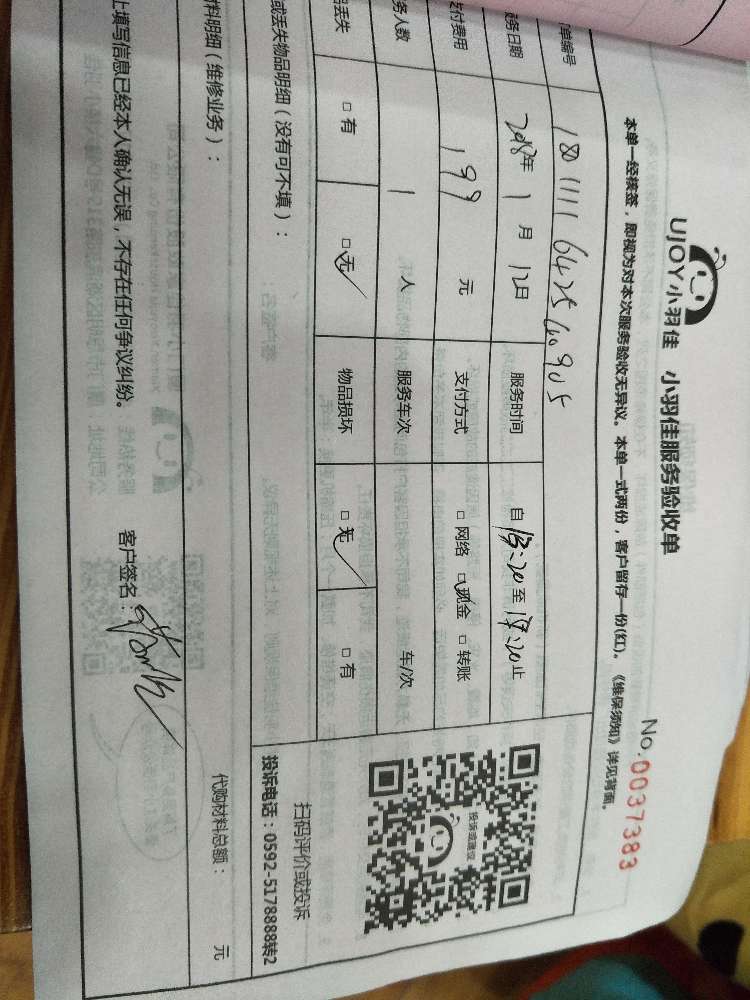 UJOY小羽佳 小羽佳服务验收单
No.0037383
本单一经核签，即视为对本次服务验收无异议。本单一式两份，客户留存一份(红)。《维保须知》详见背面。
单编号
服务日期 2018年 1 月 12日 服务时间 自 13:20 至 17:20 止
支付费用 199 元 支付方式 □ 网络 □ 现金 □ 转账
务人数 1 人 服务车次 车/次
丢失 □ 有 □ 无 物品损坏 □ 无 □ 有
投诉或建议
或丢失物品明细（没有可不填）：
扫码评价或投诉
投诉电话：0592-5178888转2
料明细（维修业务）：
代购材料总额： 元
上填写信息已经本人确认无误，不存在任何争议纠纷。 客户签名：